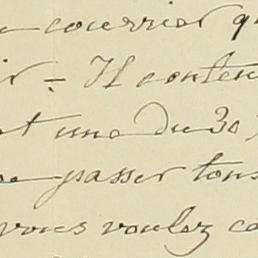 courrier q
ir = Il conten
et une du 30
passer tous
vous voulez co